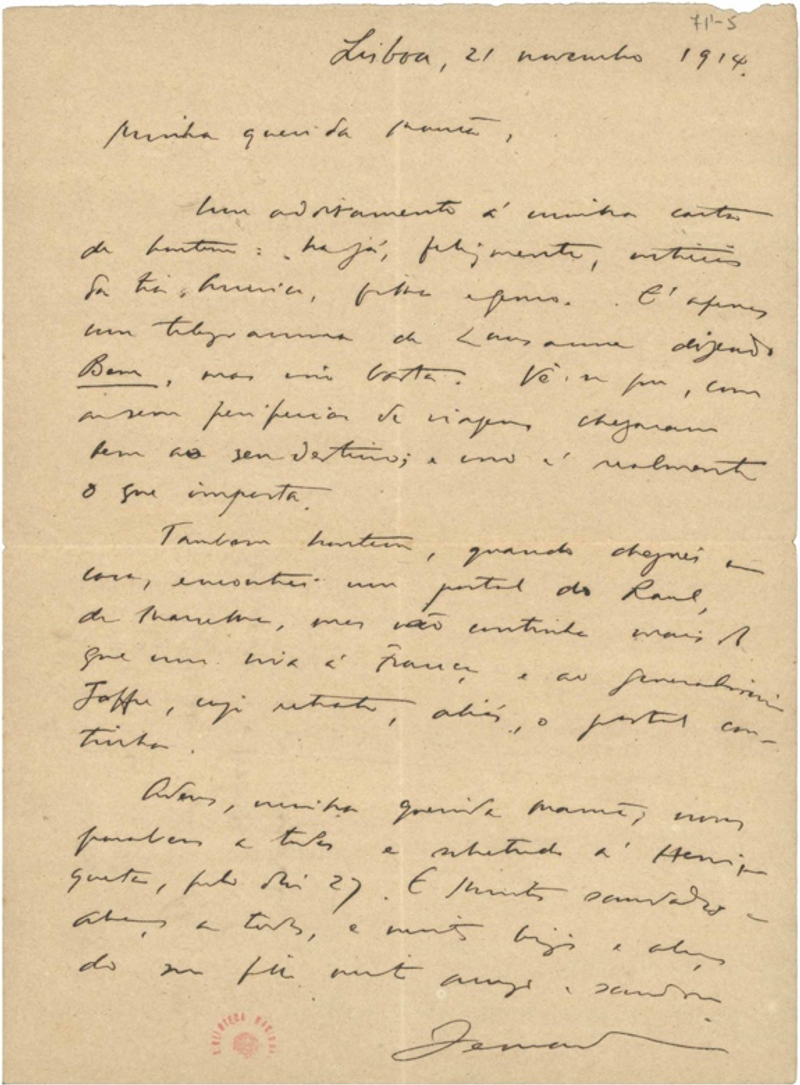 71¹-5
Lisboa, 21 novembro 1914.
Minha querida Mamã,
Um aditamento á minha carta
de hontem: ha já, felizmente, noticias
da tia Annica, filha e genro. E' apenas
um telegramma de Lausanne dizendo
Bem, mas isso basta. Vê-se que, com
ou sem peripecias de viagem chegaram
bem ao seu destino; e isso é realmente
o que importa.
Tambem hontem, quando cheguei a
casa, encontrei um postal do Raul,
de Marselha, mas não continha mais do
que um viva á França e ao generalissimo
Joffre, cujo retrato, aliás, o postal con-
tinha.
Adeus, minha querida Mamã; novos
parabens a todos e sobretudo á Henri-
queta, pelo dia 27. E muitas saudades e
abraços a todos, e muitos beijos e abraços
do seu filho muito amigo e saudoso
Fernando
BIBLIOTECA NACIONAL